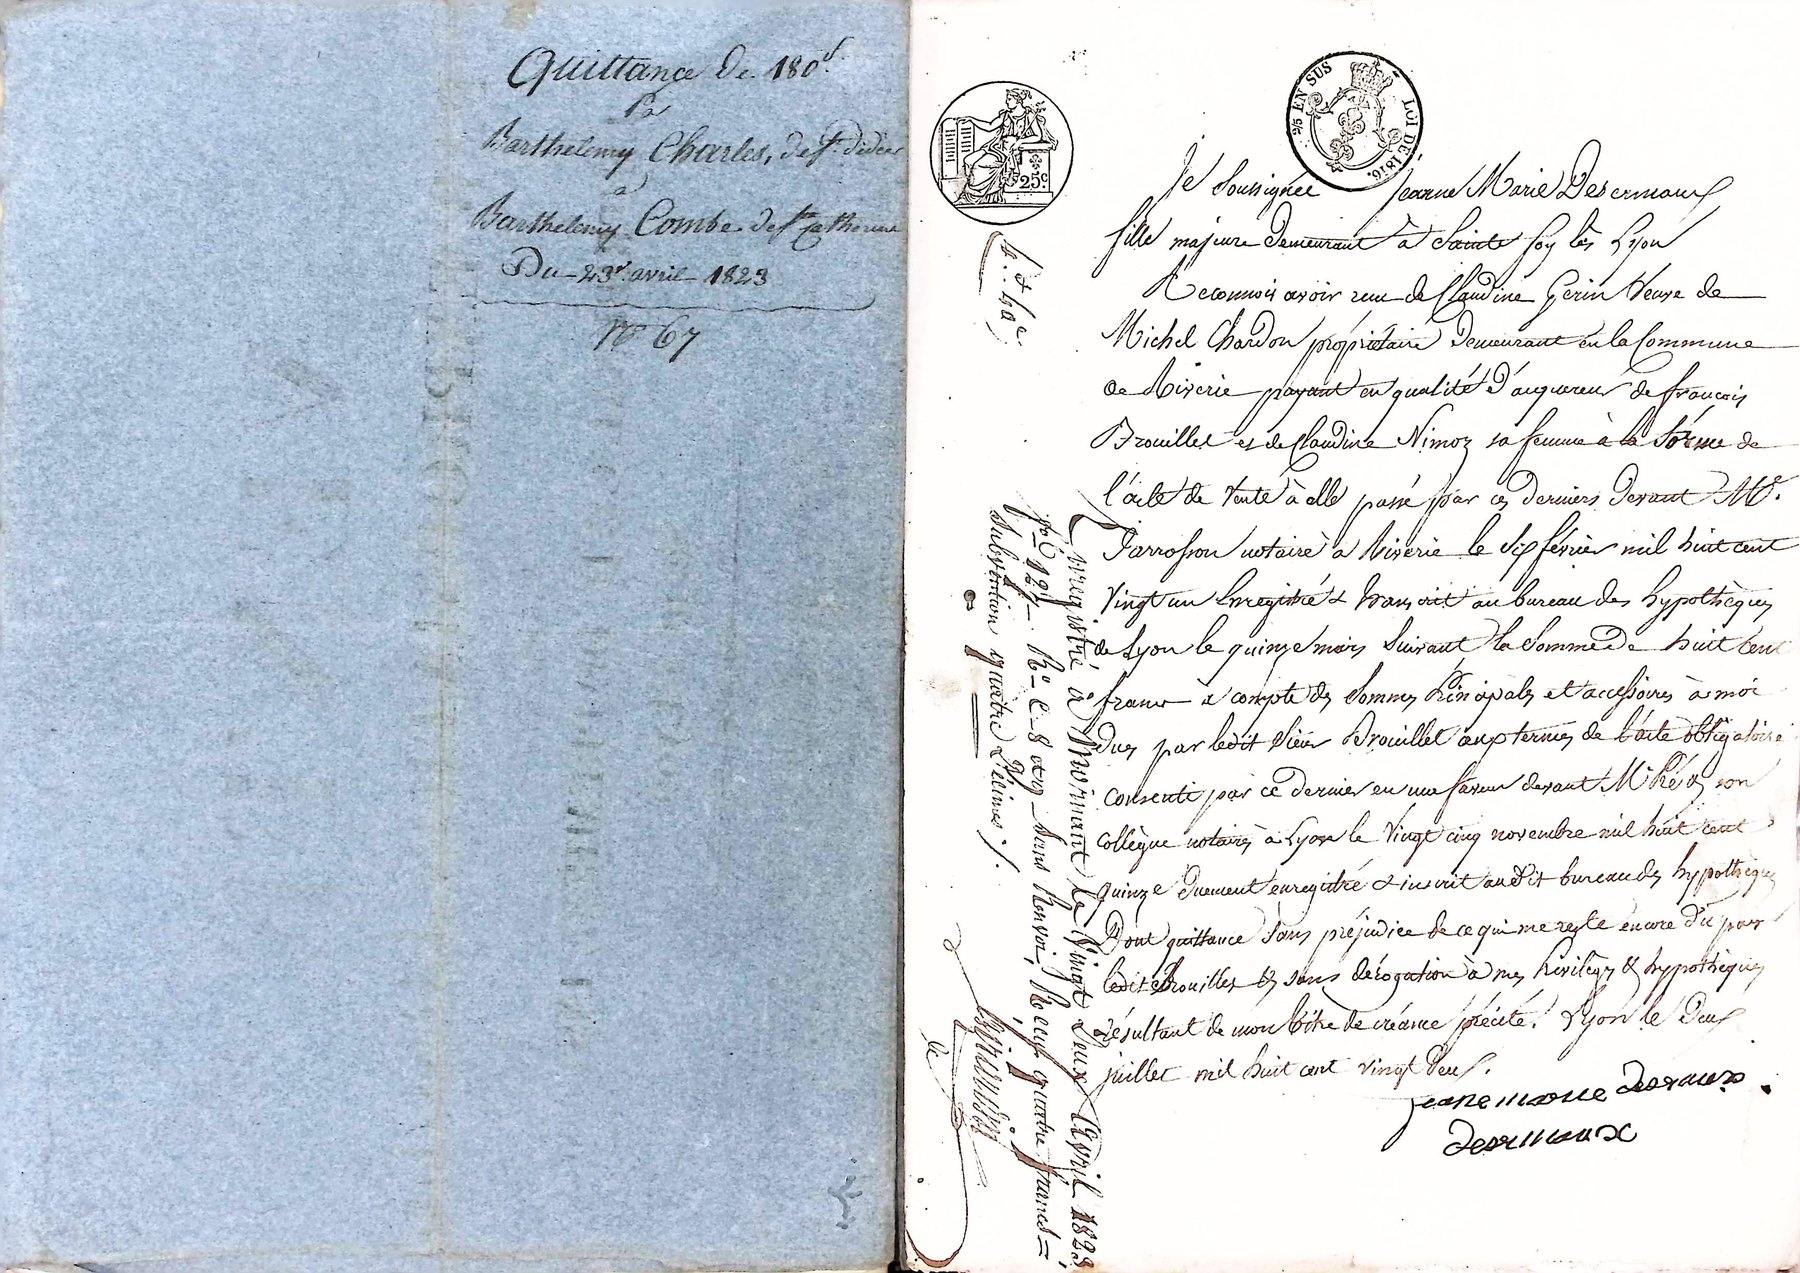 Quittance de 180f.
Par
Barthelemy Charles, de St. didier
à
Barthelemy Combe de Ste Catherine
Du 23 avril 1823
No 67
25c.
2/5 EN SUS
LOI DE 1816.
Je Soussignée Jeanne Marie Desermaux
fille majeure demeurant à Sainte foy lès Lyon
Reconnois avoir reçu de Claudine Gerin Veuve de
Michel Chardon propriétaire demeurant en la Commune
de Riverie payant en qualité d'acquereur de francois
Brouillet et de Claudine Nimoz sa femme à la forme de
l'acte de Vente à elle passé par ces derniers devant Me.
Jarrosson notaire à Riverie le Six février mil huit cent
Vingt un Enregistré & transcrit au bureau des hypothèques
de Lyon le quinze mars Suivant la Somme de huit Cent
francs à compte des Sommes Principales et accessoires à moi
dues par ledit Sieur Brouillet aux termes de l'acte obligatoire
consenti par ce dernier en ma faveur devant Me son
collègue notaires à Lyon le Vingt cinq novembre mil huit cent
quinze duement enregistré & inscrit audit bureau des hypothèques
Dont quittance Sans préjudice de ce qui me reste encore dû par
ledit Brouillet & sans dérogation à mes Privilèges & hypothèques
résultant de mon titre de créance précité. Lyon le Deux
juillet mil huit cent vingt deux.
jeane marie
Enregistré à Mornant le Vingt deux Avril 1823
fo 127 Ro C 8 & 9 Sans Renvoi, Reçu quatre francs
Subvention quatre Décimes
4f 40c